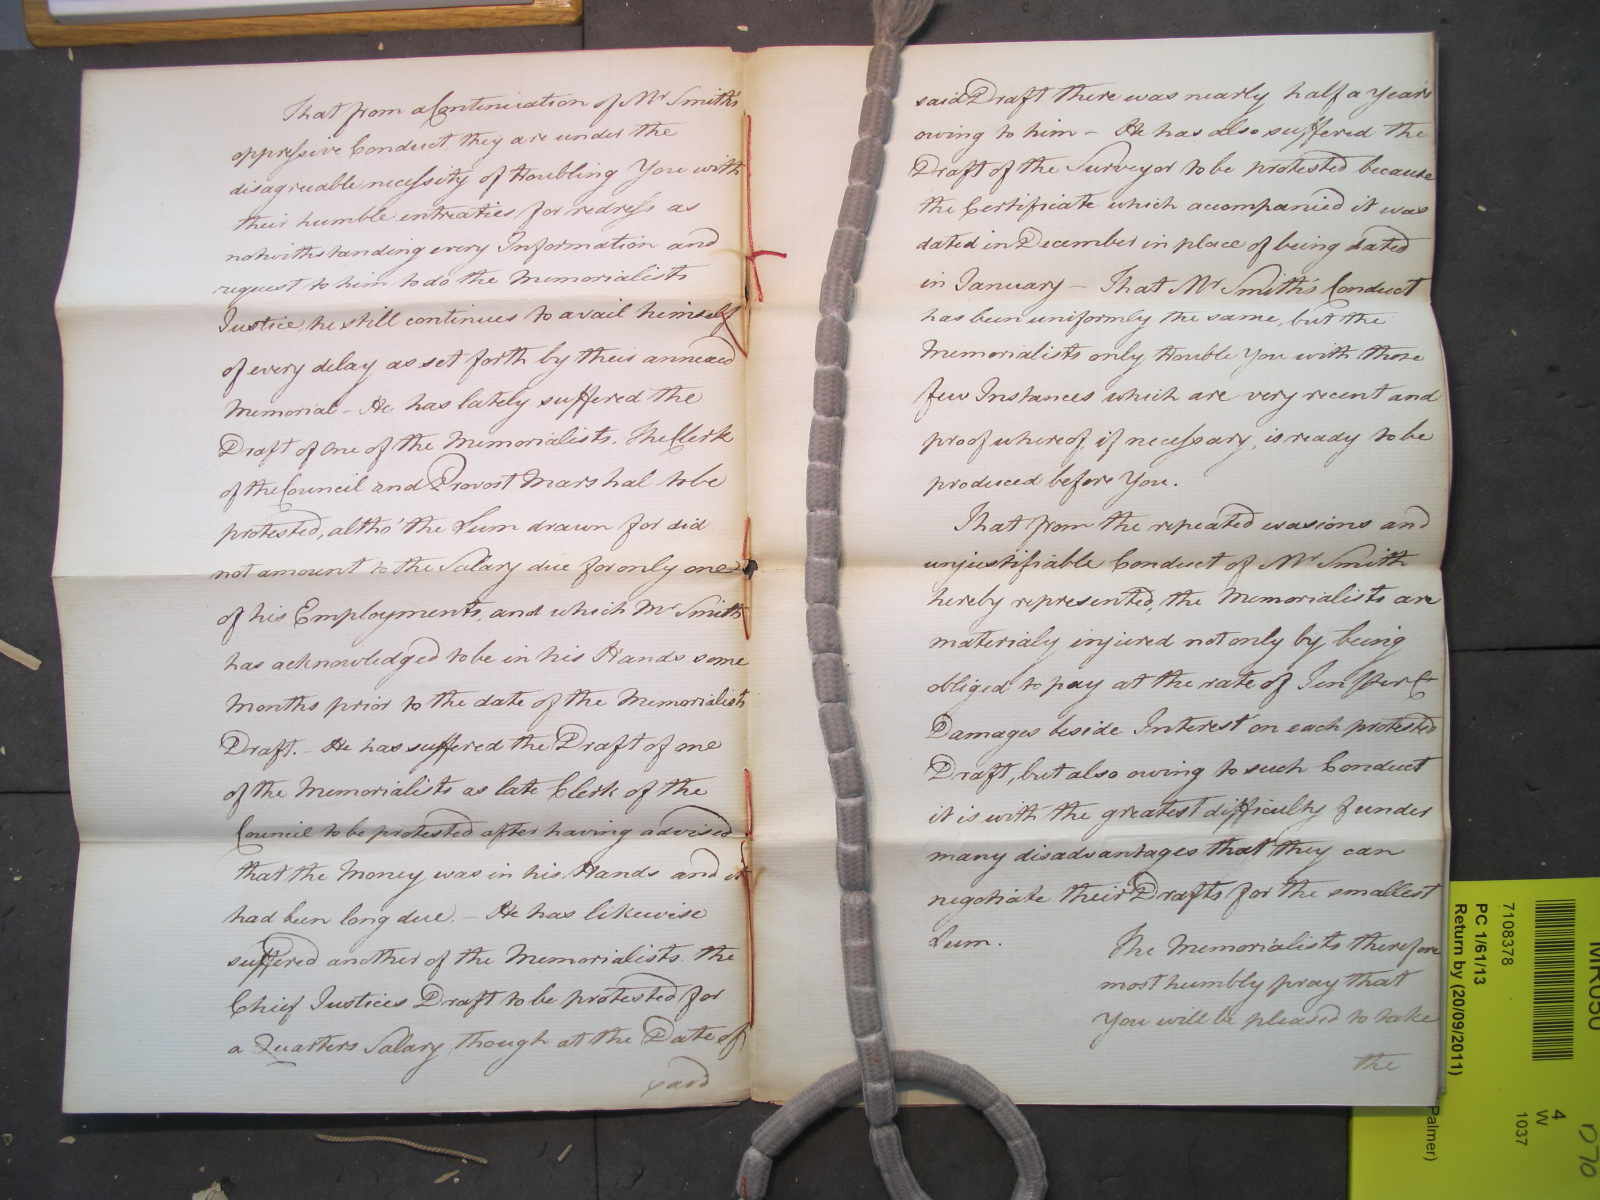 That from a Continuation of Mr Smith's
oppressive Conduct, they are under the
disagreeable necessity of troubling You with
their humble entreaties for redress as
notwithstanding every Information and
request to him to do the Memorialists
Justice, he still continues to avail himself
of every delay as set forth by their annexed
Memorial - He has lately suffered the
Draft of One of the Memorialists, The Clerk
of the Council and Provost Marshal to be
protested, altho' the Sum drawn for did
not amount to the Salary due for only one
of his Employments, and which Mr Smith
has acknowledged to be in his Hands some
Months prior to the date of the Memorialists
Draft. - He has suffered the Draft of one
of the Memorialists as late Clerk of the
Council to be protested after having advised
that the Money was in his Hands and it
had been long due. - He has likewise
suffered another of the Memorialists, the
Chief Justices Draft to be protested for
a Quarters Salary though at the Date of
said
said Draft there was nearly half a Years
owing to him - He has also suffered the
Draft of the Surveyor to be protested because
the Certificate which accompanied it was
dated in December in place of being dated
in January - That Mr Smith's Conduct
has been uniformly the same, but the
Memorialists only trouble You with those
few Instances which are very recent and
proof whereof, if necessary, is ready to be
produced before You.
That from the repeated evasions and
unjustifiable Conduct of Mr Smith
hereby represented, the Memorialists are
materialy injured not only by being
obliged to pay at the rate of Ten per Ct
Damages beside Interest on each protested
Draft, but also owing to such Conduct
it is with the greatest difficulty & under
many disadvantages that they can
negotiate their Drafts for the smallest
Sum.
The Memorialists therefore
most humbly pray that
You will be pleased to take
the
7108378
PC 1/61/13
Return by (20/09/2011)
Palmer)
4
W
1037
MR050